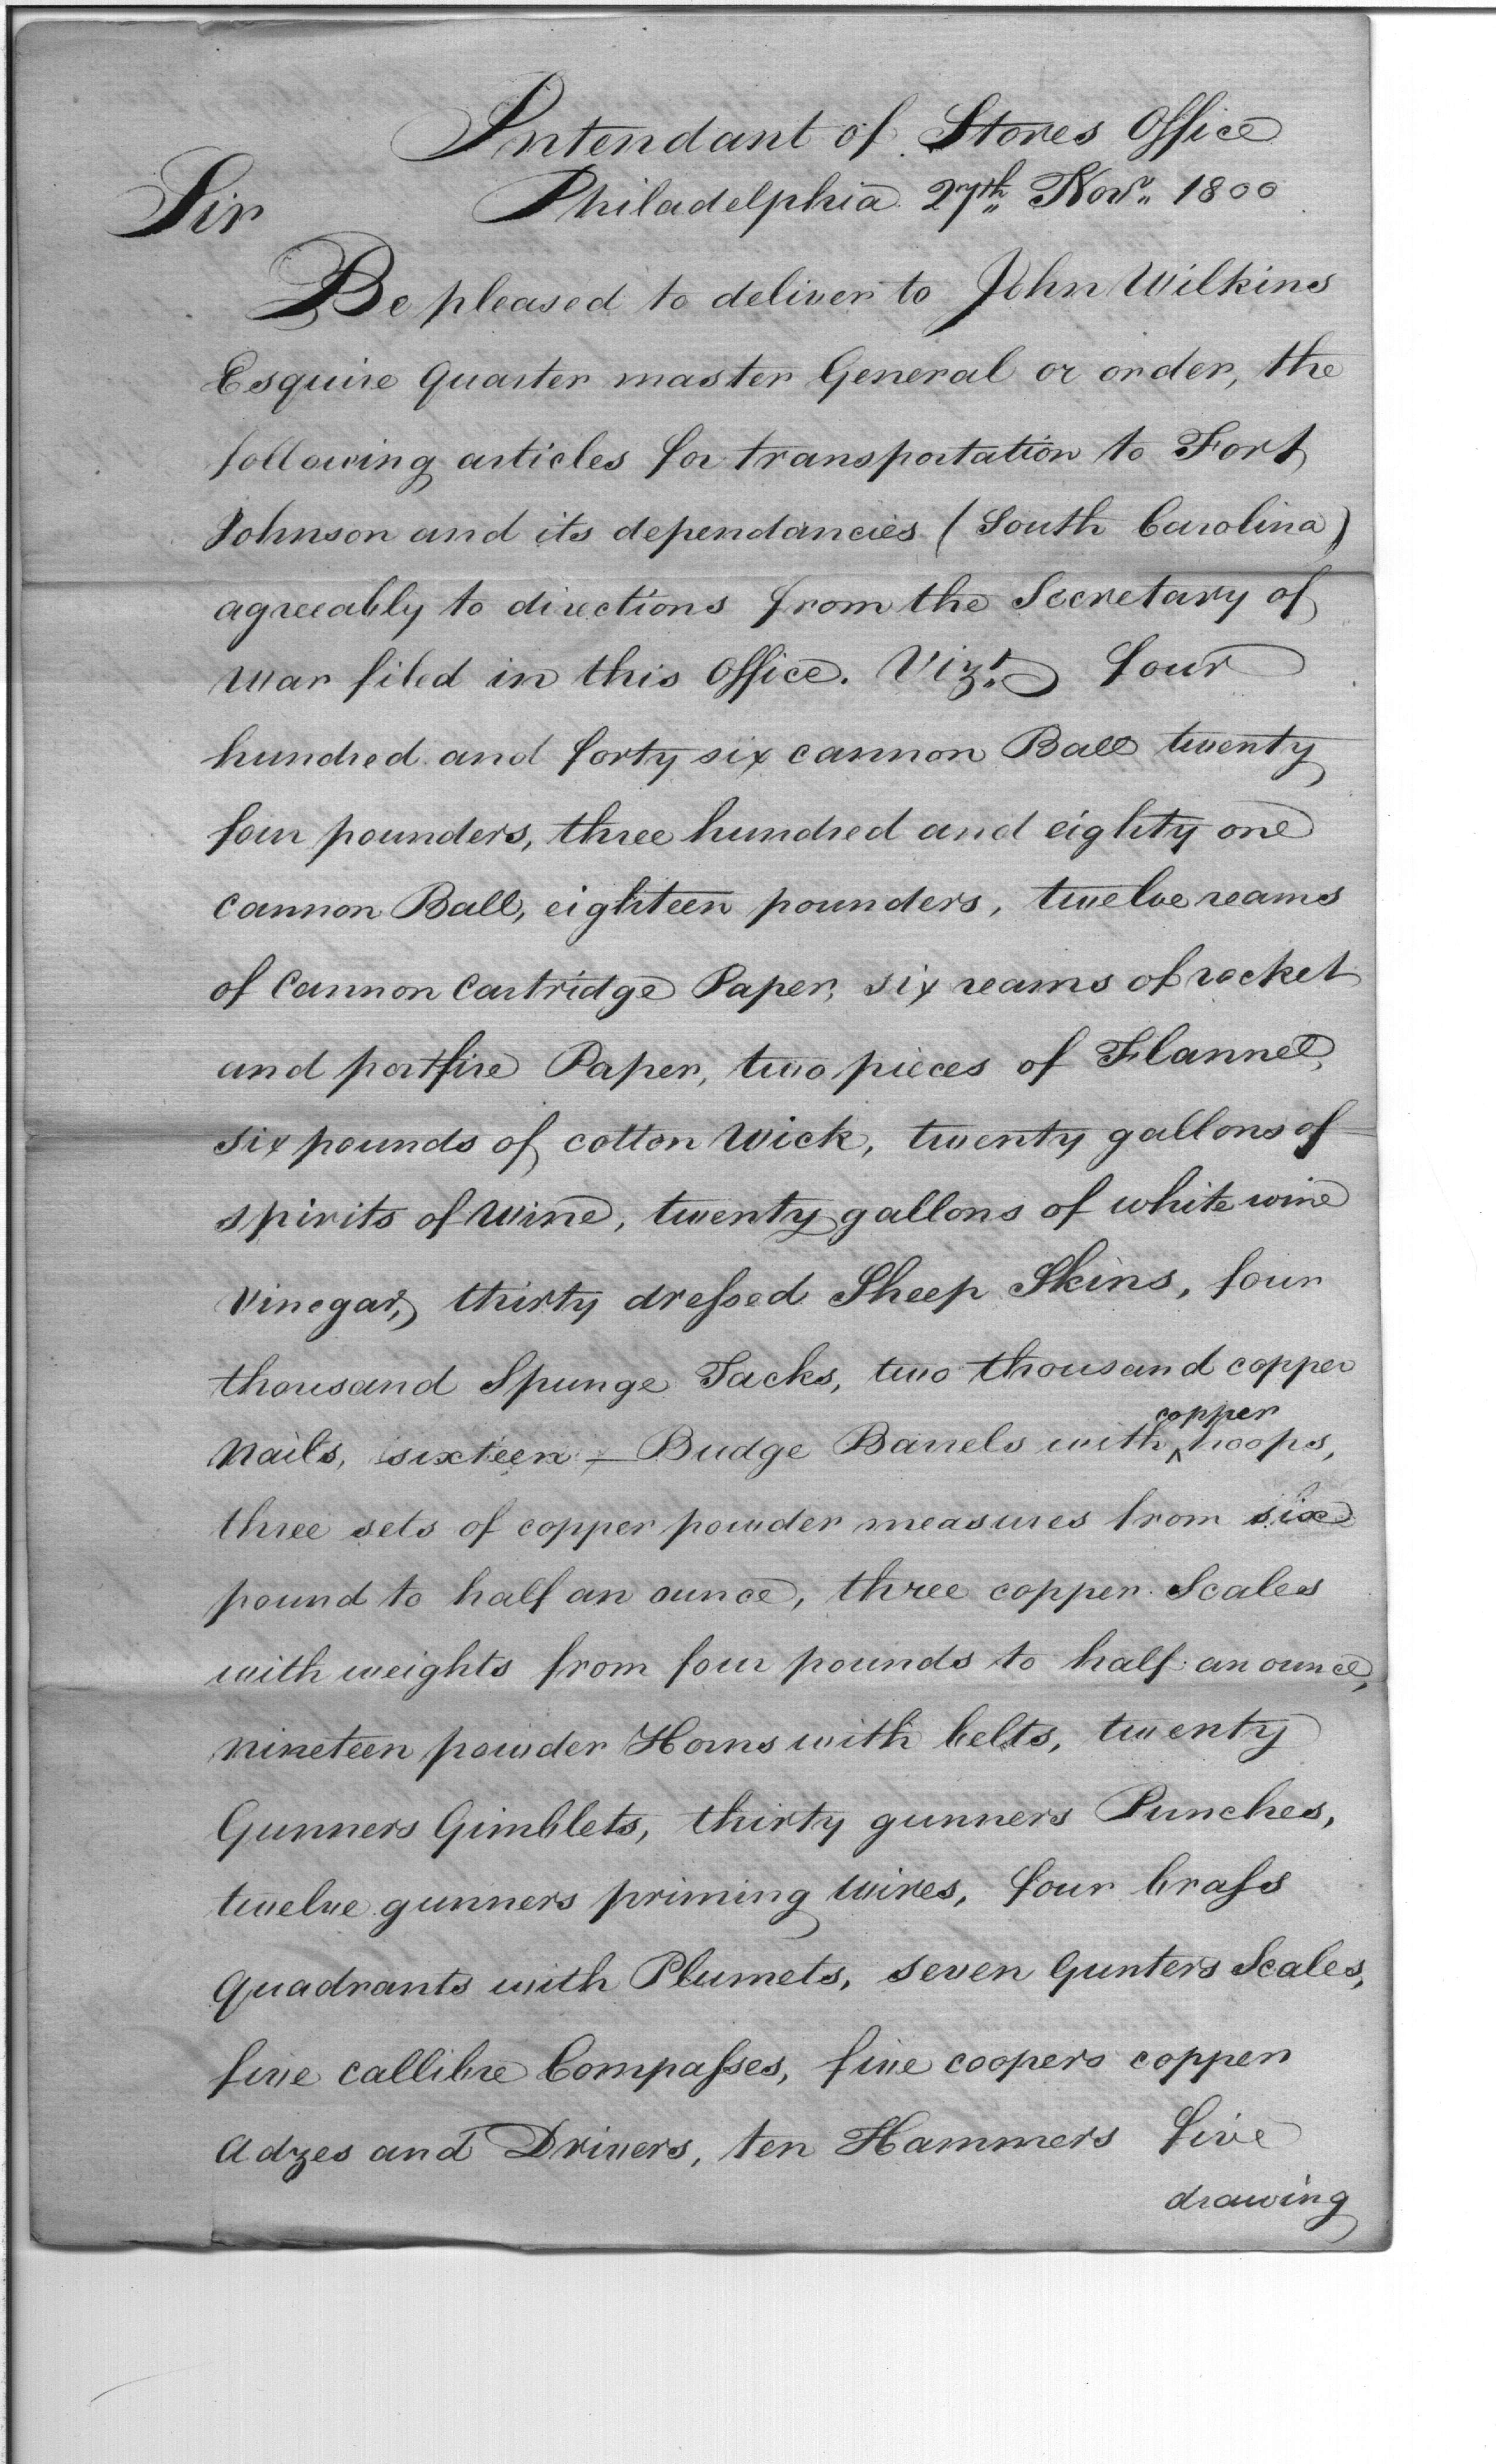 Intendant of Stores Office
Sir Philadelphia 27th Novr 1800
Be pleased to deliver to John Wilkins
Esquire Quarter master General or order, the
following articles for transportation to Fort
Johnson and its dependancies (South Carolina)
agreeably to directions from the Secretary of
War filed in this Office. Vizt. four
hundred and forty six cannon Ball twenty
four pounders, three hundred and eighty one
Cannon Ball, eighteen pounders, twelve reams
of Cannon Cartridge Paper, six reams of rocket
and portfire Paper, two pieces of Flannel,
six pounds of cotton Wick, twenty gallons of
spirits of Wine, twenty gallons of white wine
Vinegar, thirty dressed Sheep Skins, four
thousand Spunge Tacks, two thousand copper
Nails, sixteen - Budge Barrels with copper hoops,
three sets of copper powder measures from six
pound to half an ounce, three copper Scales
with weights from four pounds to half an ounce,
nineteen powder Horns with belts, twenty
Gunners Gimblets, thirty gunners Punches,
twelve gunners priming Wires, four brass
Quadrants with Plumets, seven Gunters Scales,
five callibre Compasses, five coopers copper
Adzes and Drivers, ten Hammers five
drawing